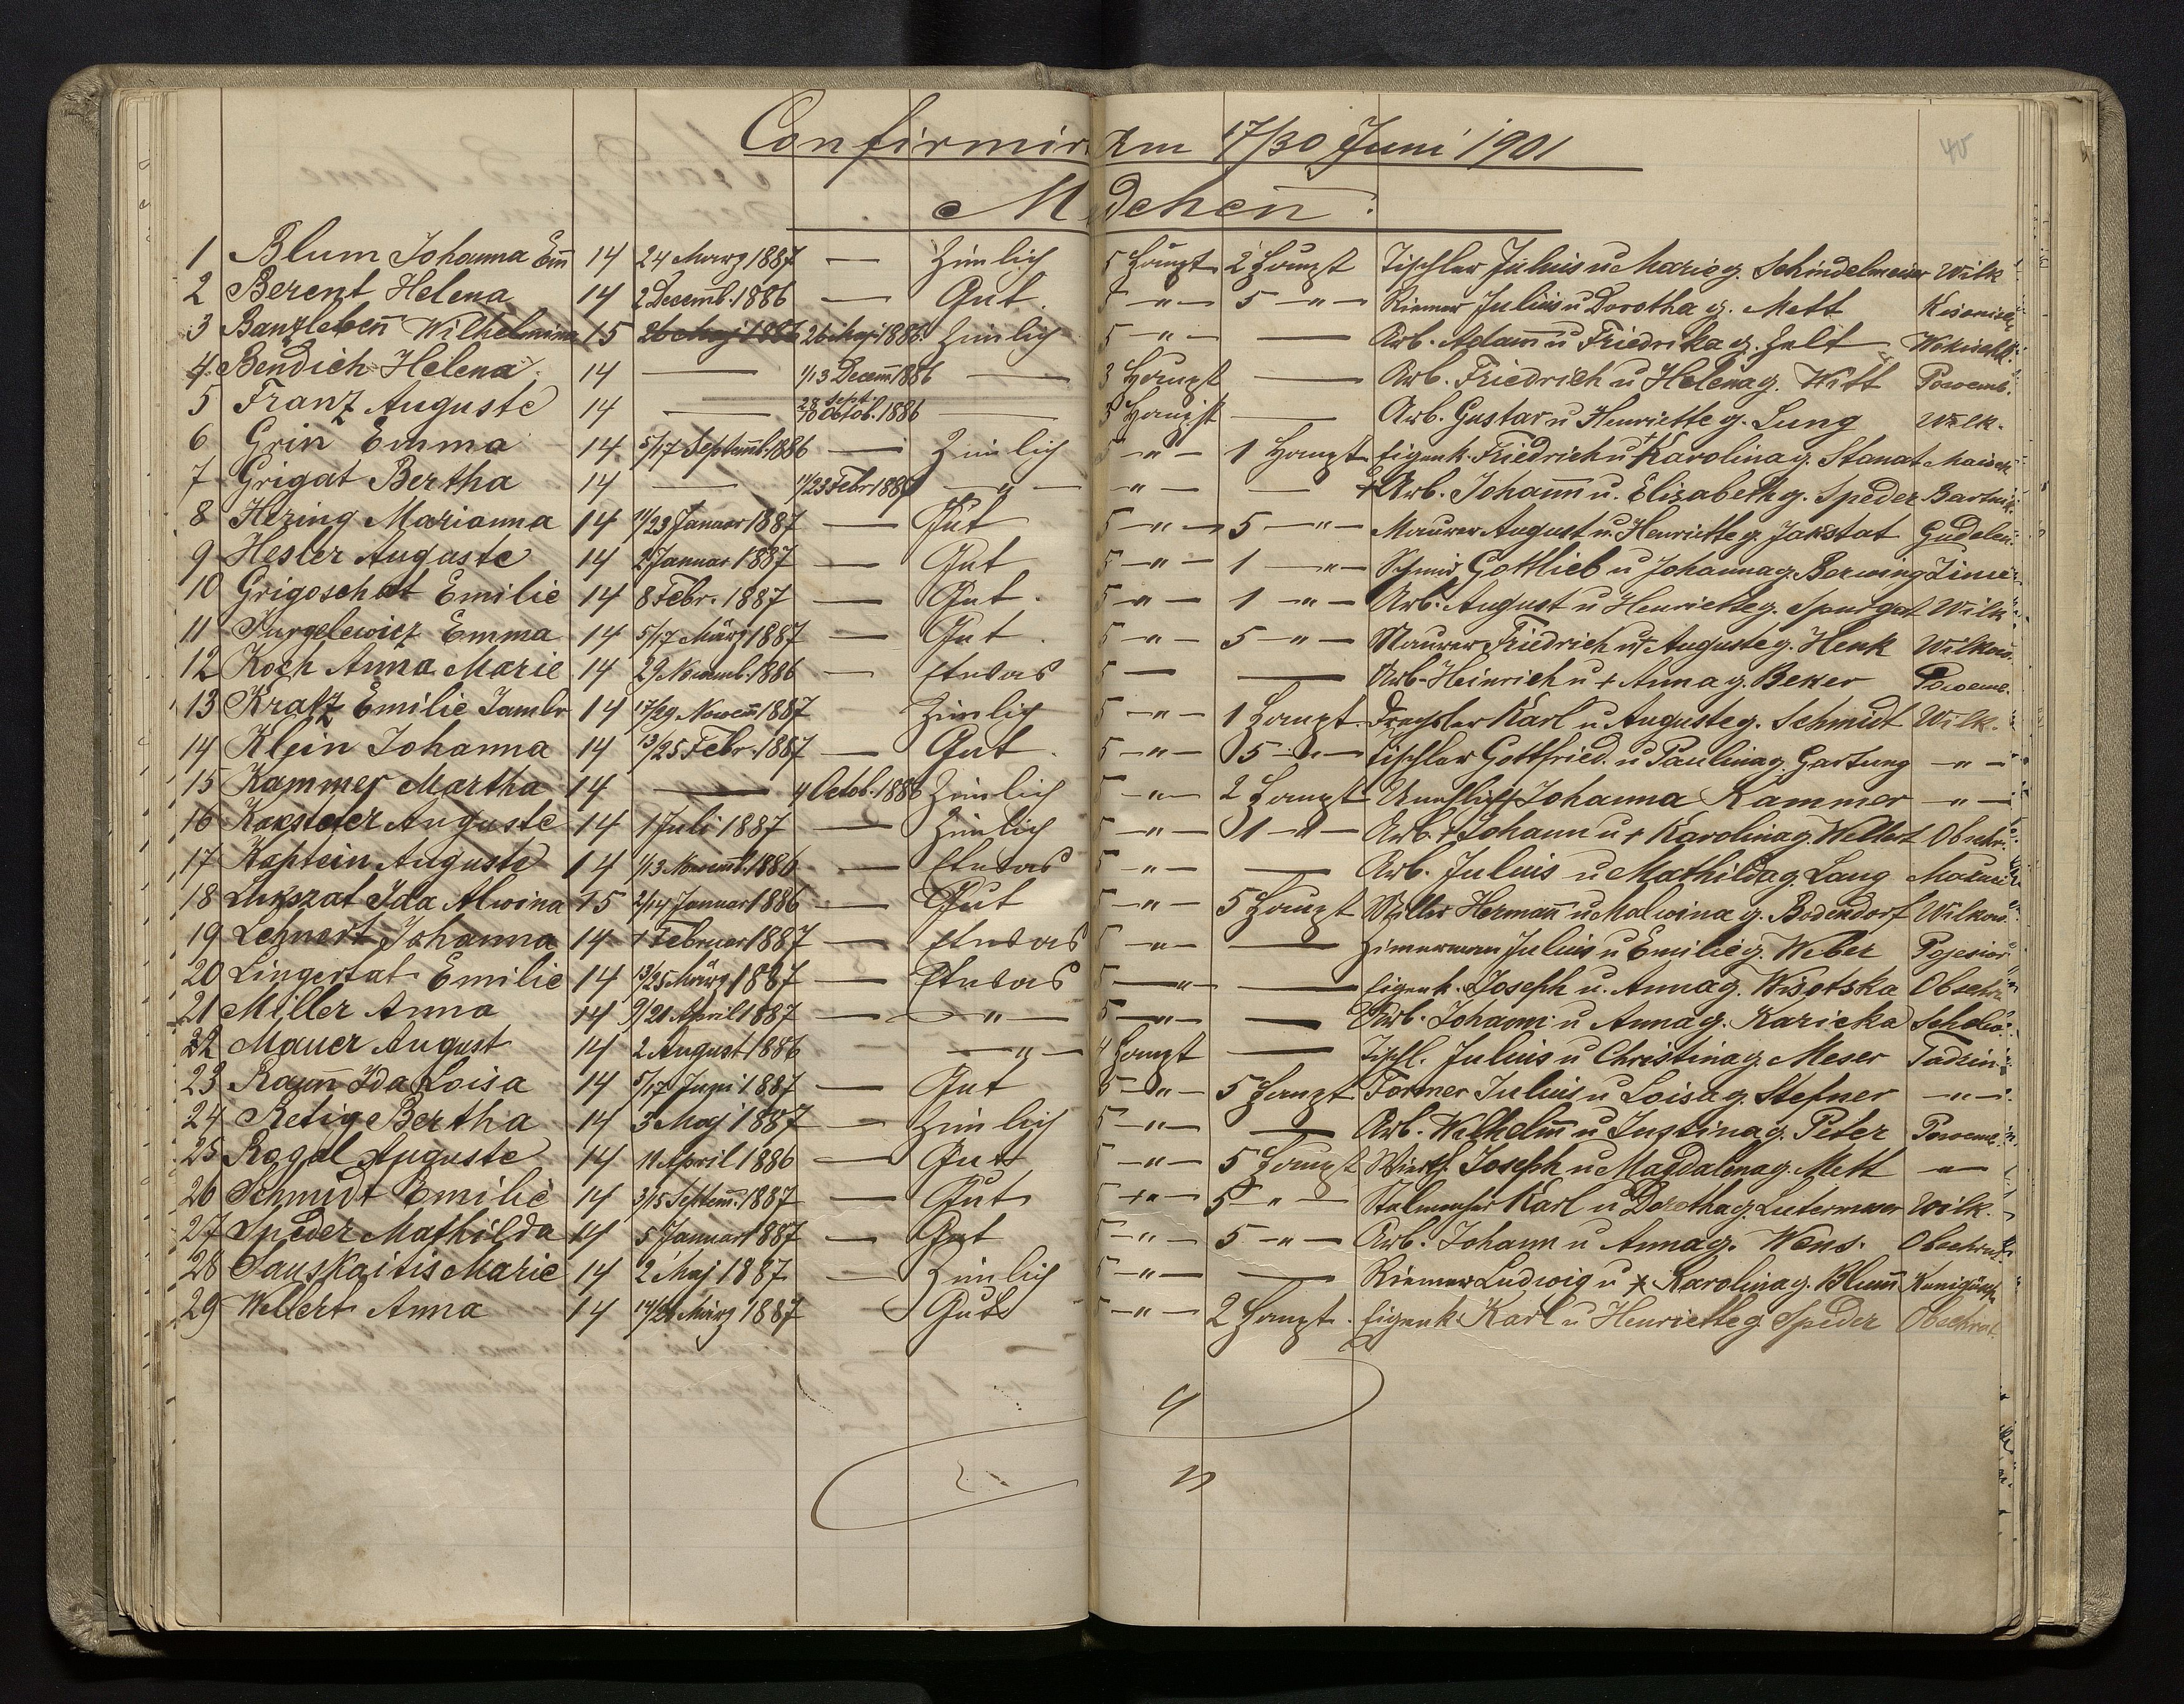 Confirmirt Am 17/30 Juni 1901
40
Mädchen:
1 Blum Johanna Em̄ 14 24 Marz 1887 — Zimlich 5 Haupt 2 Haupt Tischler Julius u Marie g. Schindelmeiser Wilk
2 Berent Helena 14 2 Decemb. 1886 — Gut. 5 —"— 5 —"— Riemer Julius u Dorotha g. Mett
3 Banzleben̄ Wilhelmina 15 26 Maj 1886 26 Maj 1886 Zimlich 5 —"— — Arb. Adam̄ u Friedrika g. Zelt
4 Bendich Helena 14 — 1/13 Decem̄ 1886 — 3 Haupt — Arb. Friedrich u Helena g. Witt Powemb.
5 Franz Auguste 14 — 28 Sept. /10 Octob. 1886 — 3 Haupt — Arb. Gustav u Henriette g. Lung Wilk.
6 Grin Emma 14 5/17 Septemb. 1886 — Zimlich 5 —"— 1 Haupt Eigenk. Friedrich u + Karolina g. Stanat
7 Grigat Bertha 14 — 11/23 Febr 1887 —"— —"— — + Arb. Johan̄ u. Elisabeth g. Speder Bartnik.
8 Hezing Marianna 14 11/23 Januar 1887 — Gut 5 —"— 5 —"— Maurer August u. Henriette g. Jakstat Gudelen.
9 Hesler Auguste 14 2 Januar 1887 — Gut 5 —"— 1 —"— Schmid Gottlieb u Johanna g. Berwing
10 Grigoschat Emilie 14 8 Febr. 1887 — Gut. 5 —"— 1 —"— Arb. August u Henriette g. Spurgat Wilk
11 Jurgelewicz Emma 14 5/17 März 1887 — Gut. 5 —"— 5 —"— Maurer Friedrich u + Auguste g. Henk Wilkow.
12 Koch Anna Marie 14 29 Novemb. 1886 — Etwas 5 — — Arb. Heinrich u + Anna g. Beker Powemb.
13 Kratz Emilie 14 17/29 Novem̄ 1887 — Zimlich 5 —"— 1 Haupt Drechsler Karl u Auguste g. Schmidt Wilk.
14 Klein Johanna 14 13/25 Febr. 1887 — Gut. 5 —"— 5 —"— Tischler Gottfried. u Paulina g. Gartung —"—
15 Kammer Martha 14 — 4 Octob. 1886 Zimlich 5 —"— 2 Haupt Unehlich Johanna Kammer —"—
16 Auguste 14 1 Juli 1887 — Zimlich 5 —"— 1 —"— Arb. + Johann u + Karolina g. Wellert Obschr.
17 Kaptein Auguste 14 1/13 Novemb. 1886 — Etwas 5 —"— — Arb. Julius u Mathilda g. Lang
18 Lukszat Ida Alwina 15 2/14 Januar 1886 — Gut 5 —"— 5 Haupt Hermañ u Malwina g. Bodendorf Wilkow.
19 Lehnert Johanna 14 1 Februer 1887 — Etwas 5 —"— — Zimerman Julius u Emilie g. Weber
20 Lingertat Emilie 14 13/25 März 1887 — Etwas 5 —"— — Eigenk. Joseph u. Anna g. Wisotska
21 Miller Anna 14 9/21 April 1887 — —"— 5 —"— — Arb. Johann u Anna g. Karicka
22 Mauer August 14 2 August 1886 — —"— 4 Haupt — Tischl. Julius u Christina g. Meser
23 Ida Loisa 14 5/17 Juni 1887 — Gut 5 —"— 5 Haupt Former Julius u Loisa g. Stefner —"—
24 Retig Bertha 14 3 Maj 1887 — Zimlich 5 —"— — Arb. Wilhelm̄ u Justina g. Peter Powemb.
25 Ragal Auguste 14 11 April 1886 — Gut 5 —"— 5 Haupt Wirth. Joseph u Magdalena g. Mett —"—
26 Schmidt Emilie 14 3/15 Septem̄. 1887 — Gut 5 —"— 5 —"— Stelmacher Karl u Dorotha g. Wilk.
27 Speder Mathilda 14 5 Januar 1887 — Gut 5 —"— 5 —"— Arb. Johann u Anna g. Wens.
28 Sauskaitis Marie 14 2 Maj 1887 — Zimlich 5 —"— — Riemer Ludwig u + Karolina g. Blum̄
29 Wellert Anna 14 März 1887 — Gut 5 —"— 2 Haupt. Eigenk. Karl u Henriette g. Speder Obschrut.